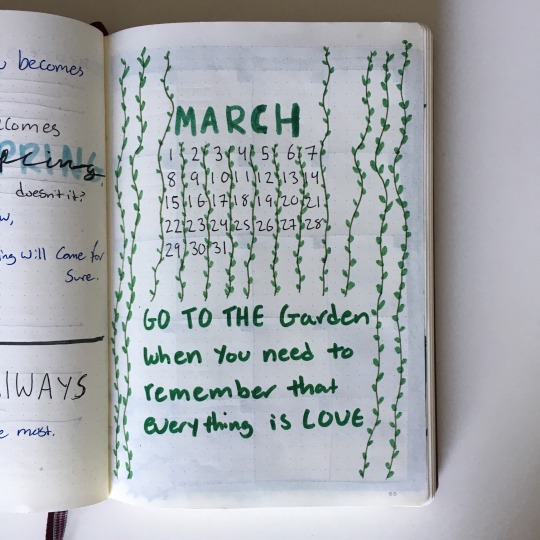 becomes
comes
SPRING
spring
doesn't it?
will come for
Sure.
most.
MARCH
1 2 3 4 5 6 7
8 9 10 11 12 13 14
15 16 17 18 19 20 21
22 23 24 25 26 27 28
29 30 31
GO TO THE Garden
when you need to
remember that
everything is LOVE